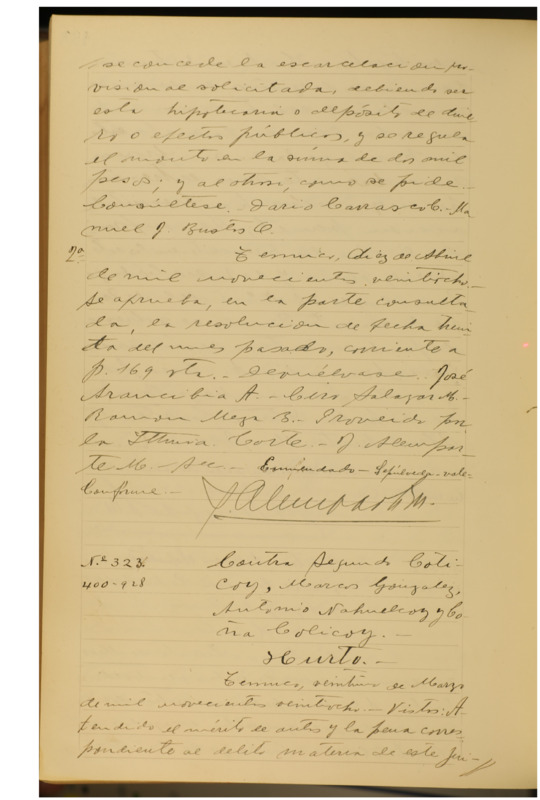 se concede la escarcelacion pro-
visional solicitada, debiendo ser
esta hipotecaria o depósito de dine
ro o efectos públicos, y se regula
el monto en la suma de dos mil
pesos; y al otrosí, como se pide.
Consúltese. Dario Carrasco C. Ma
nuel J. Bustos O.
2ª Temuco, diez de Abril
de mil novecientos veintiocho.-
Se aprueba, en la parte consulta-
da, la resolucion de fecha trein
ta del mes pasado, corriente a
f. 169 vta.- Devuélvase. José
Arancibia A.- Ciro Salazar M.-
Ramon Meza B.- Proveido por
la Iltma. Corte.- J. Alempar-
te M. Sec.- Enmendado- -vale-
Conforme.-
J. Alemparte M.
N.º 323. Contra Segundo Coli-
400-928 coy, Marcos Gonzalez,
Antonio Nahuelcoy y Co-
ña Colicoy.-
Hurto.-
Temuco, de Marzo
de mil novecientos veintiocho.- Vistos: A-
tendido el mérito de autos y la pena corres
pondiente al delito materia de este jui-